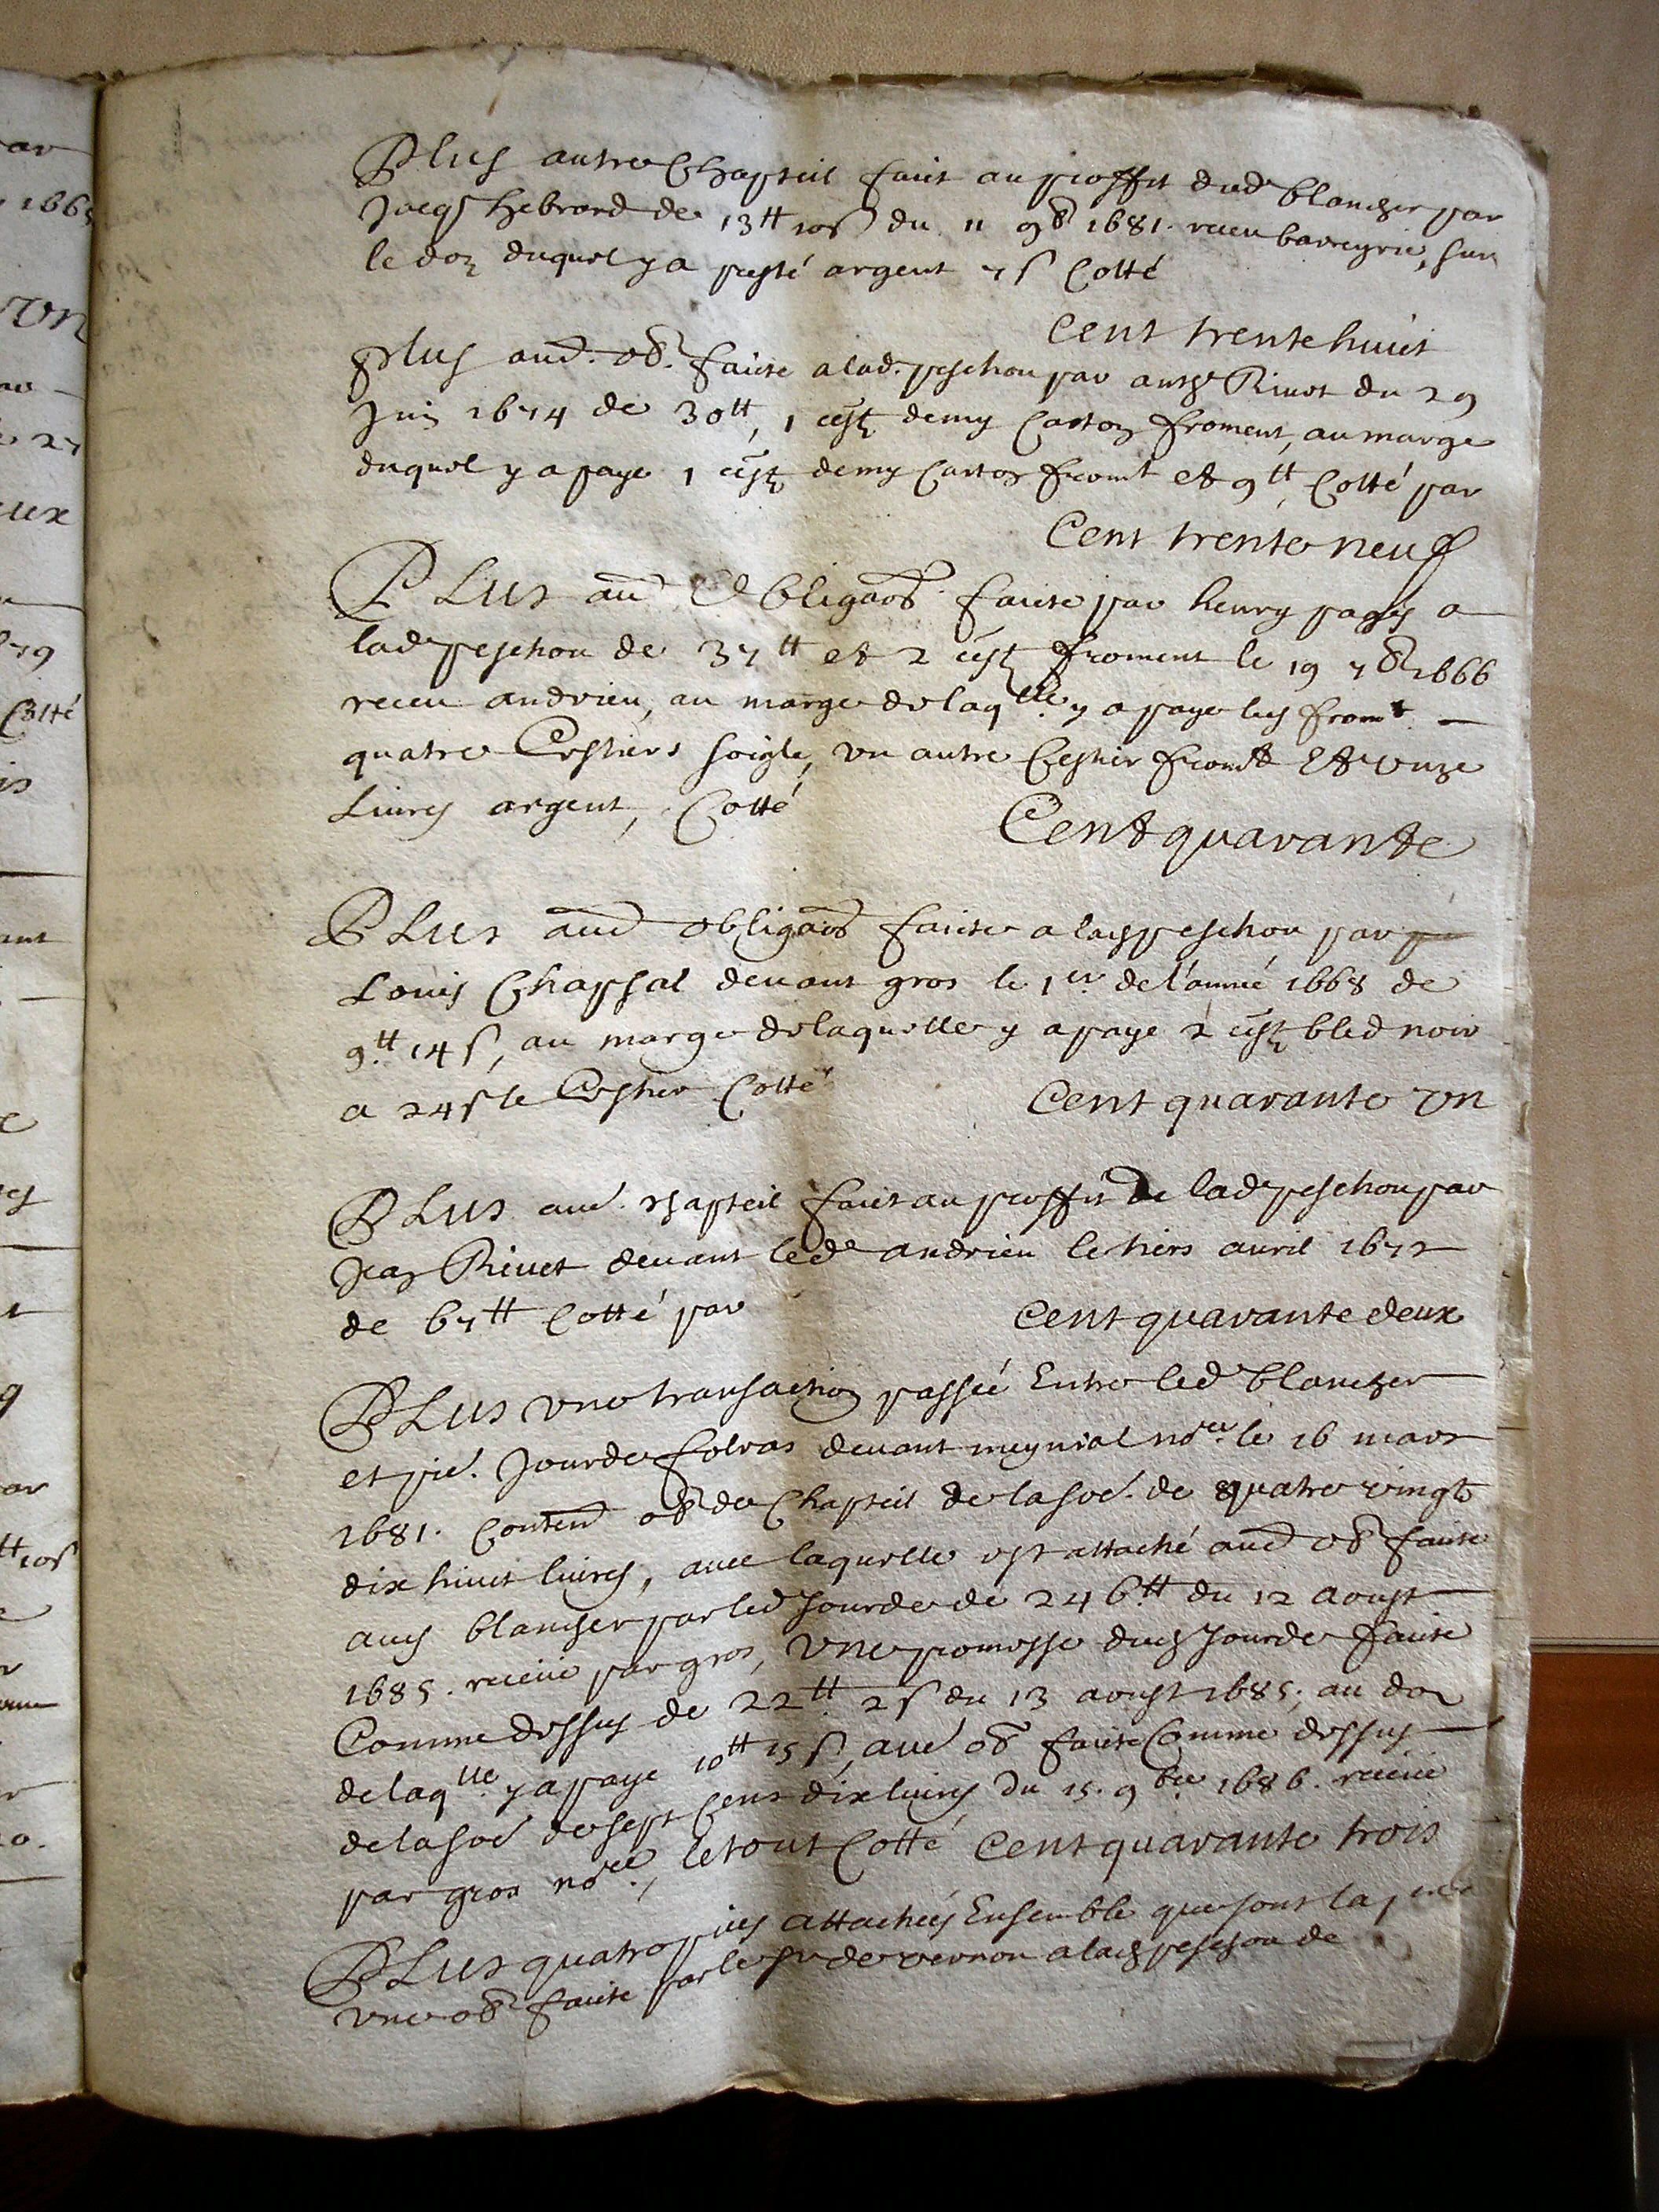 Plus autre Chapteil fait au proffit dud blancher par
Jacqs hebrard de 13tt 10s du 11 9b 1681. receu barreyrie, sur
le doz duquel y a presté argent 7s Cotté
Cent trente huit
Plus aud. ob. faite a lad. peschou par anthe Rivot du 29
Juin 1674 de 30tt, 1 cest demy Carton froment, au marge
duquel y a paye 1 cest demy Carton fromt et 9tt, Cotté par
Cent trente neuf
PLus au Obligaôn faite par henry pages a
lad peschou de 37tt et 2 cest froment le 19 7b 1666
receu andrieu, au marge de laqlle y a paye les fromt
quatre Cestiers soigle, un autre Cestier fromt Et unze
Livres argent, Cotté
Cent quarante
PLus aud obligaôn faite a lad peschou par
Louis Chapsal devant gros le 1er de l'année 1668 de
9tt 14s, au marge de laquelle y a paye 2 cest bled noir
a 24s le Cestier Cotté
Cent quarante un
PLus aud. chapteil fait au proffit de lad peschou par
Jean Rivet devant led andrieu le tiers avril 1672
de 67tt Cotté par
Cent quarante deux
PLus une transaction passée Entre led blancher
et pie. Jourde folvas devant meynial nore le 16 mars
1681. Contend ob de Chapteil de la soe. de quatre vingt
dix huit livres, avec laquelle est attaché aud ob faite
aud blancher par led Jourde de 246tt du 12 aoust
1685. receüe par gros, Une promesse dud Jourde faite
Comme dessus de 22tt 2s du 13 aoust 1685, au doz
de laqlle y a paye 10tt 15s, aud ob faite Comme dessus
de la soe de sept Cens dix livres du 15. 9bre 1686. receüe
par gros nore, le tout Cotté Cent quarante trois
PLus quatre pies attachées Ensemble que sont la
une ob faite par le sr de vernon a lad peschou de